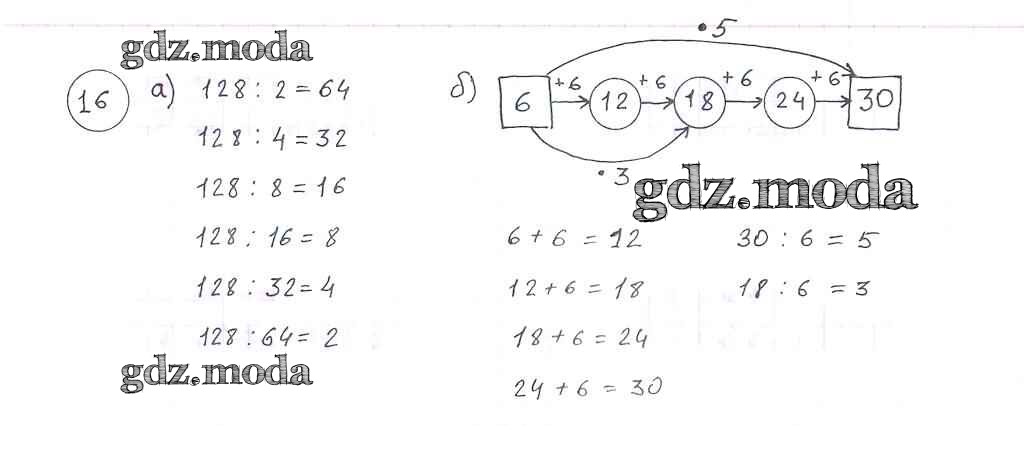 gdz.moda
16
а) 128 : 2 = 64
128 : 4 = 32
128 : 8 = 16
128 : 16 = 8
128 : 32 = 4
128 : 64 = 2
gdz.moda
б)
· 5
+6 +6 +6 +6
6 12 18 24 30
· 3
gdz.moda
6 + 6 = 12 30 : 6 = 5
12 + 6 = 18 18 : 6 = 3
18 + 6 = 24
24 + 6 = 30